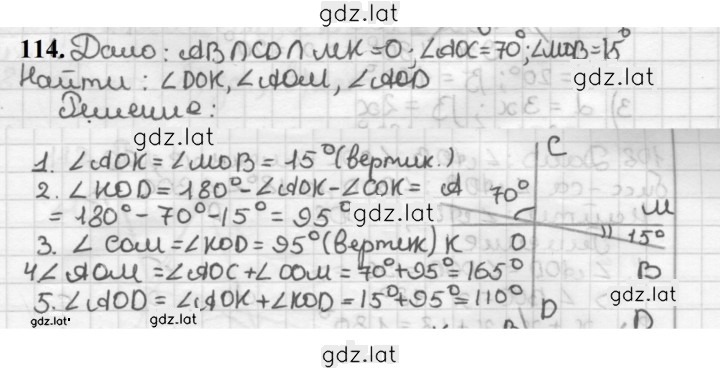 gdz.lat
114. Дано: AB∩CD∩MK=O; ∠AOC=70°; ∠MOB=15°
Найти: ∠DOK, ∠AOM, ∠AOD
gdz.lat
Решение:
gdz.lat
1. ∠AOK=∠MOB=15° (вертик.)
2. ∠KOD=180°-∠AOK-∠COK=
=180°-70°-15°=95°
gdz.lat
3. ∠COM=∠KOD=95° (вертик)
4 ∠AOM=∠AOC+∠COM=70°+95°=165°
5. ∠AOD=∠AOK+∠KOD=15°+95°=110°
C
A
70°
M
K
O
15°
B
gdz.lat
D
gdz.lat
gdz.lat
gdz.lat